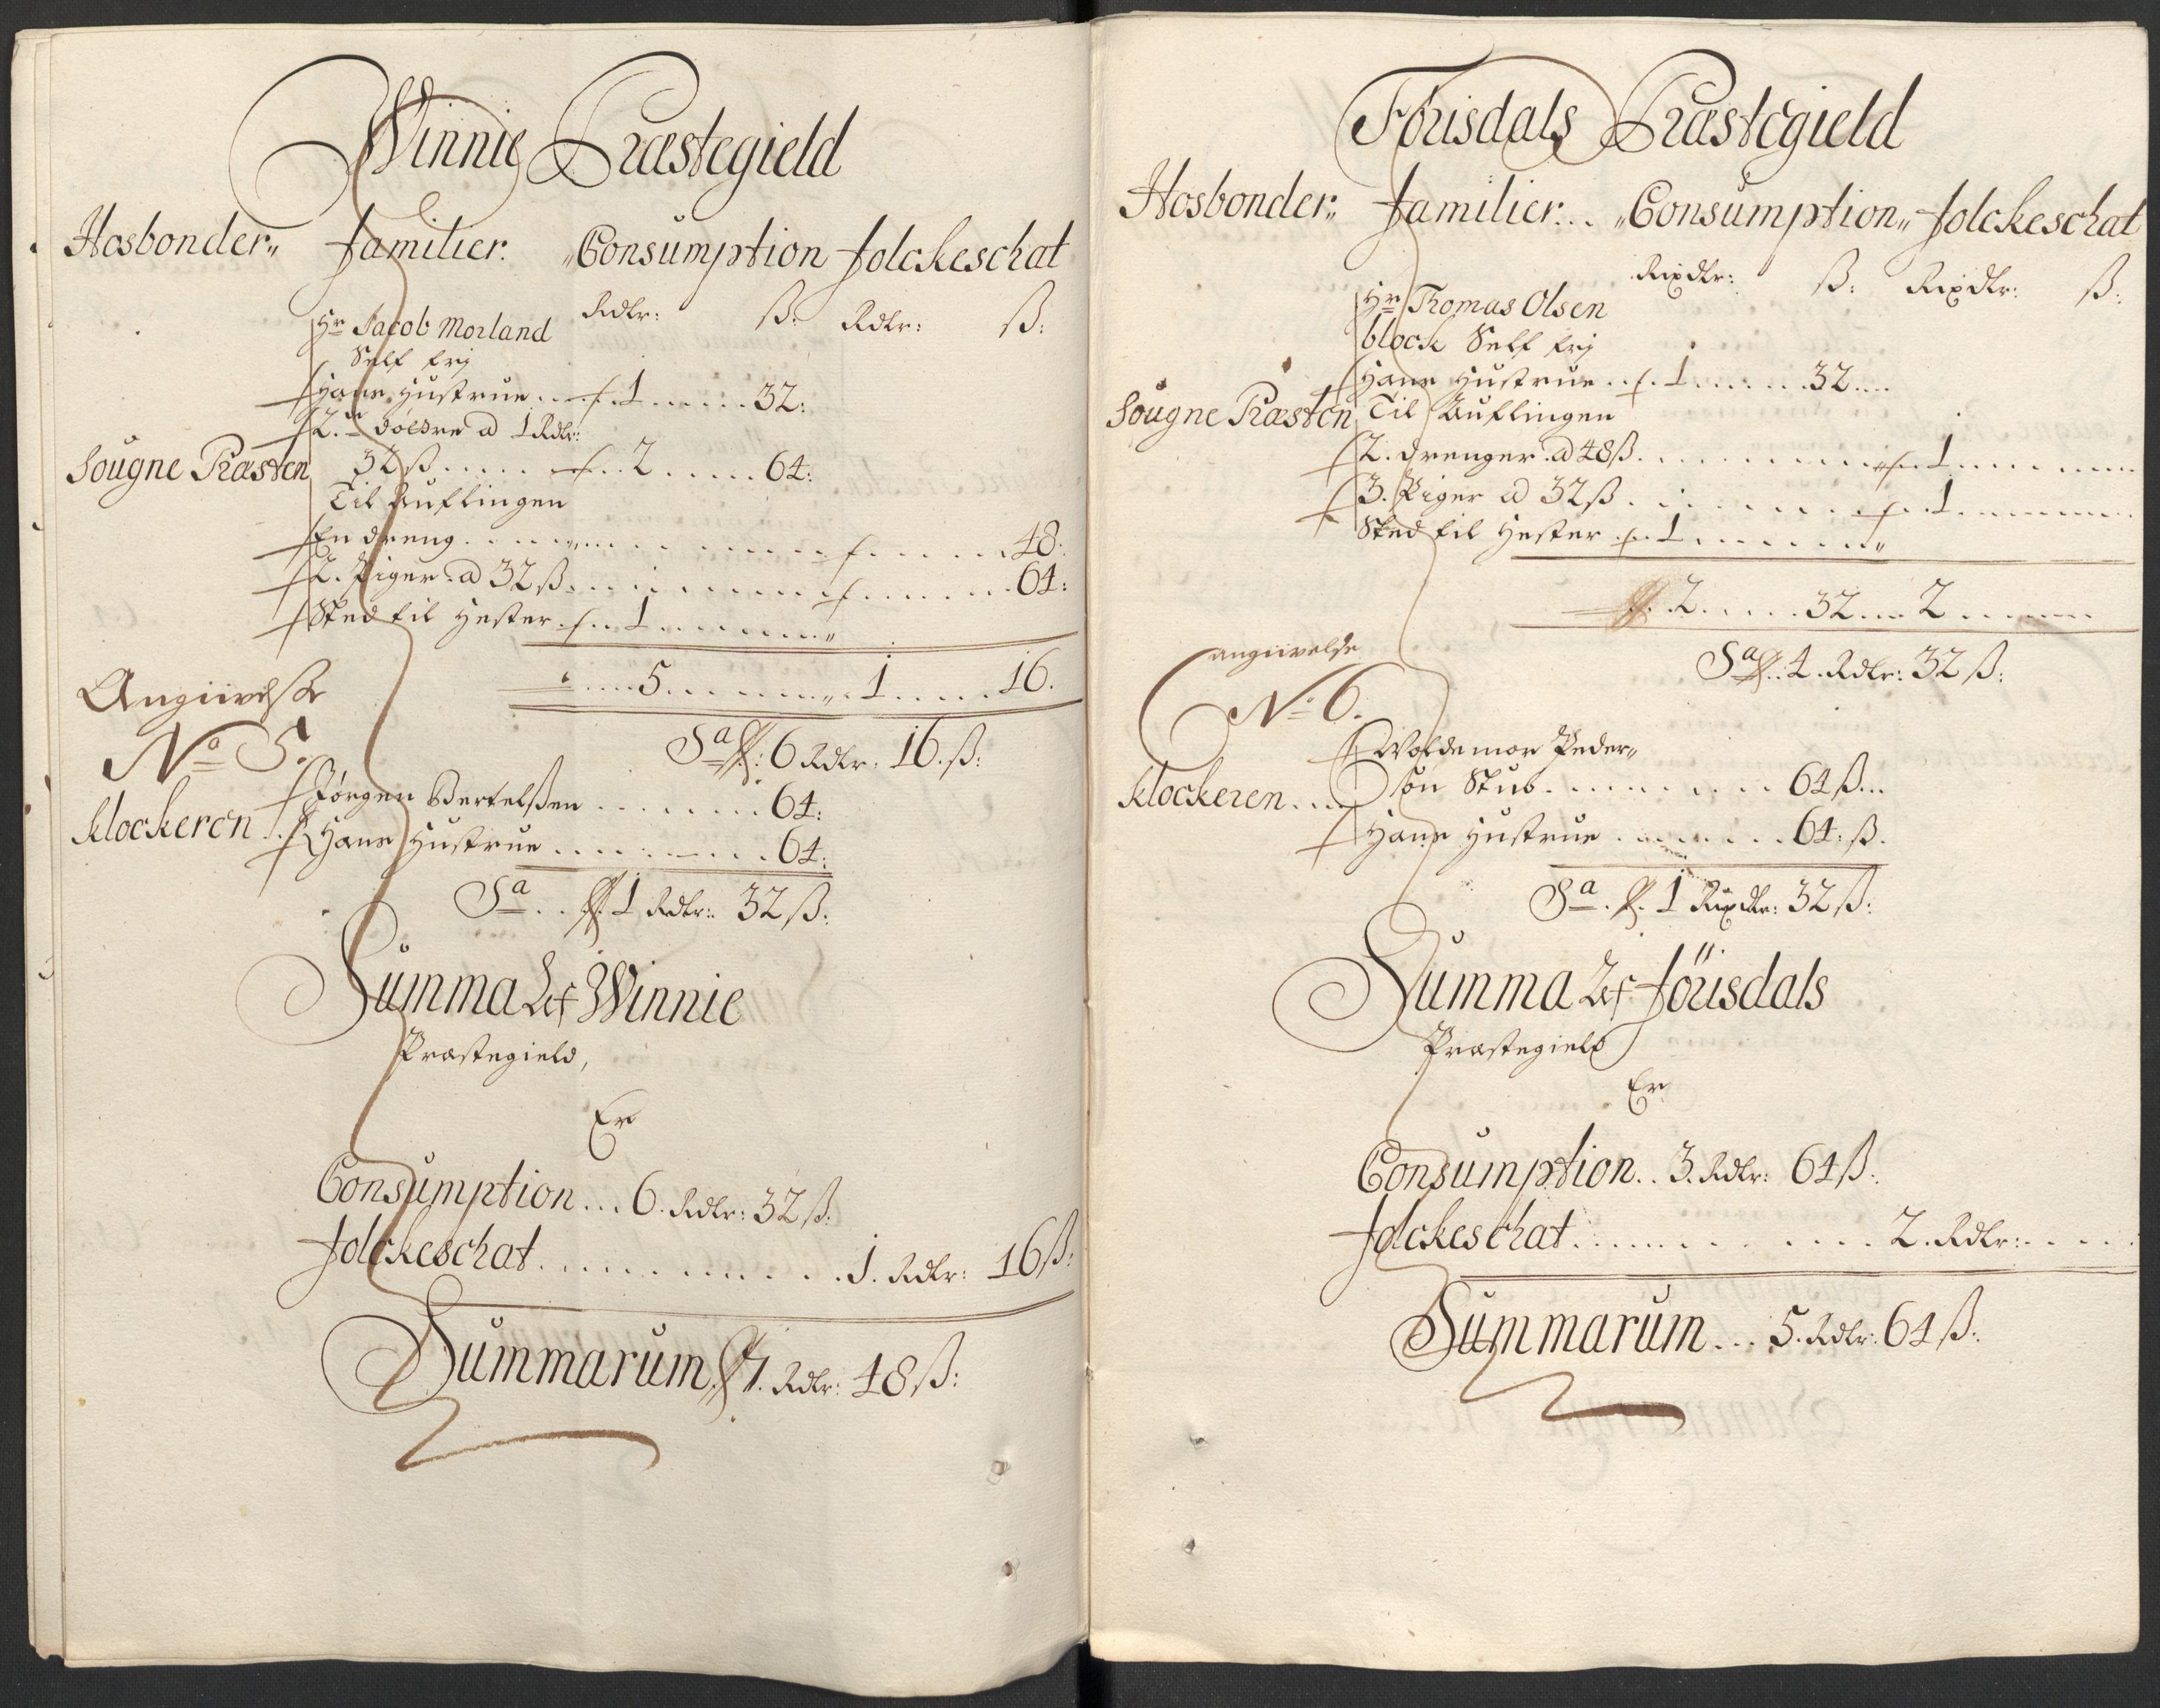 Winnie Præstegield
Hosbonder,, Familier: ,,Consumption Folckeschat
Rdlr: ß: Rdlr: ß:
Hr Jacob Morland
Self frj
Hans Hustrue 1 32:
2. de døttre a 1 Rdlr:
Sougne Præsten 32 ß 2 64:
Til Auflingen
En dreng 48:
2. Piger a 32 ß 64:
Sted til Hester 1 ,,
5 ,, 1 16.
Angiivelsse
Sa 6 Rdlr: 16. ß:
No 5.
Jørgen Bertelßen 64:
klockeren
Hans Hustrue 64:
Sa 1 Rdlr: 32 ß:
Summa Af Winnie
Præstegield,
Er
Consumption 6. Rdlr: 32 ß:
Folckeschat 1. Rdlr: 16 ß:
Summarum 7. Rdlr: 48 ß:
Förisdals Præstegield
Hosbonder,, Familier: ,,Consumption,, Folckeschat
Rixdlr: ß: Rixdlr: ß:
Hr Thomas Olsen
block Self frj
Hans Hustrue 1 32
Sougne Præsten Til Auflingen
2. drenger a 48 ß 1
3. Piger a 32 ß 1
Sted til Hester 1 ,,
2 32 2
Sa 4. Rdlr: 32 ß:
angiivelse
No 6.
Woldemor Peder,,
klockeren søn Stub 64 ß
Hans Hustrue 64: ß.
Sa 1 Rixdlr: 32 ß:
Summa Af Förisdals
Præstegield
Er
Consumption 3. Rdlr: 64 ß:
Folckeschat 2. Rdlr:
Summarum 5. Rdlr: 64 ß: